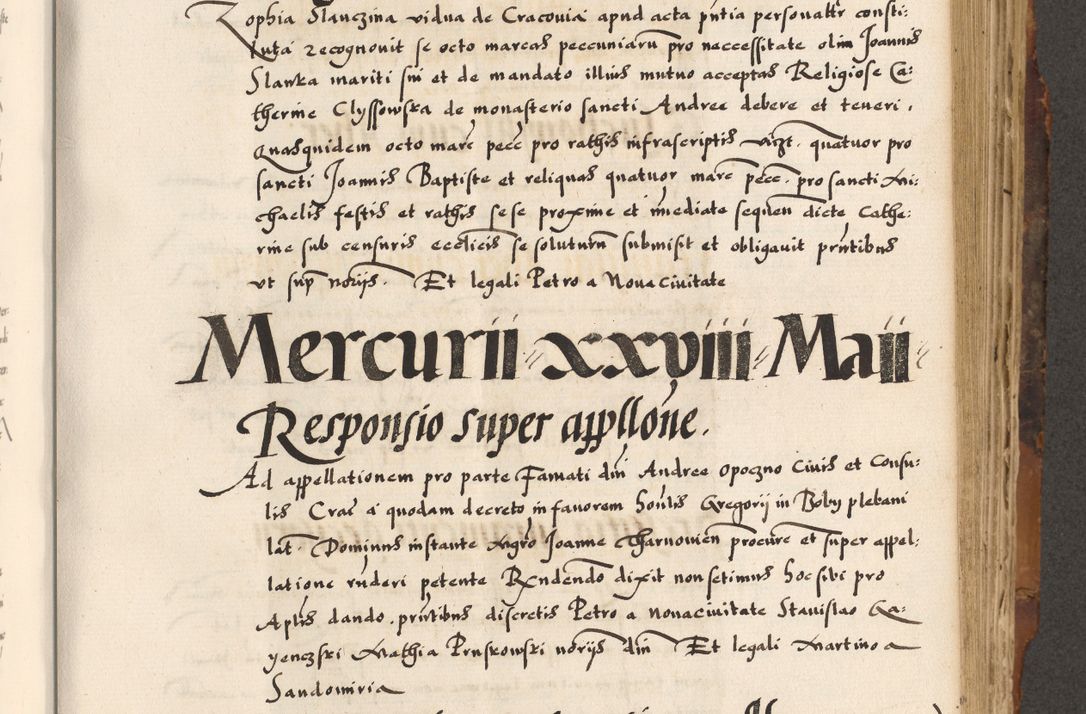 Zophia Slanczina vidua de Cracouia apud acta pntia personaltr consti:
tuta recognouit se octo marcas peccuniaru pro neccessitate olim Joannis
Slanka mariti sui et de mandato illius mutuo acceptas Religiose Ca:
therine Clyssowska de monasterio sancti Andree debere et teneri.
Quasquidem octo marc pecc pro rathis infrascriptis vizt. quatuor pro
sancti Joannis Baptiste et reliquas quatuor marc pecc. pro sancti Mi:
chaelis festis et rathis se se proxime et imediate sequen dicte Cathe:
rine sub censuris ecclicis se soluturu submisit et obligauit pntibus
vt sup norijs. Et legali Petro a Noua ciuitate
Mercurii xxviii Maii
Responsio super appllone.
Ad appellationem pro parte Famati dni Andree Opoczno Ciuis et Consu:
lis Crac a quodam decreto in favorem honlis Gregorij in Boby plebani
lat. Dominus instante Mgro Joanne Tharnowien procure et super appel:
latione rnderi petente Rxndendo dixit non setimus hoc sibi pro
Aplis dando. pntibus discretis Petro a noua ciuitate Stanislao Ga:
yenczski Mathia Pruskowski norijs dni Et legali Martino a
Sandomiria